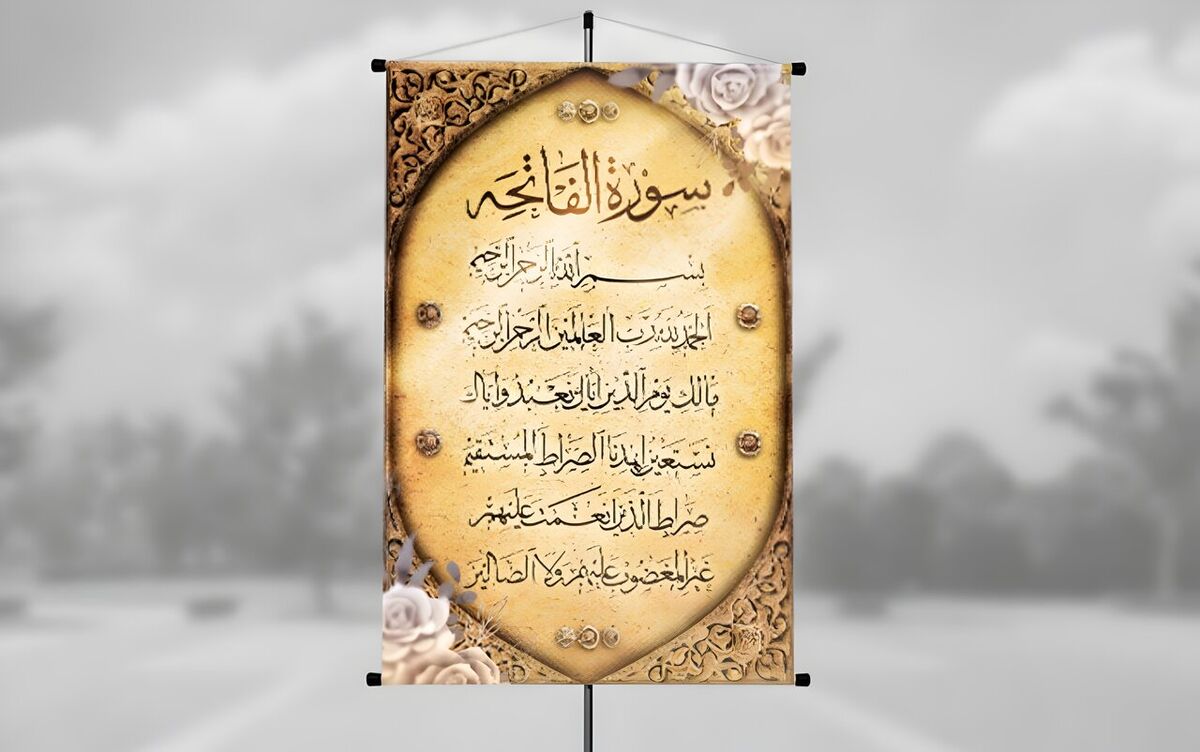 سورة الفاتحه
بسم الله الرحمن الرحيم
الحمد لله رب العالمين الرحمن الرحيم
مالك يوم الدين اياك نعبد واياك
نستعين اهدنا الصراط المستقيم
صراط الذين انعمت عليهم
غير المغضوب عليهم ولا الضالين